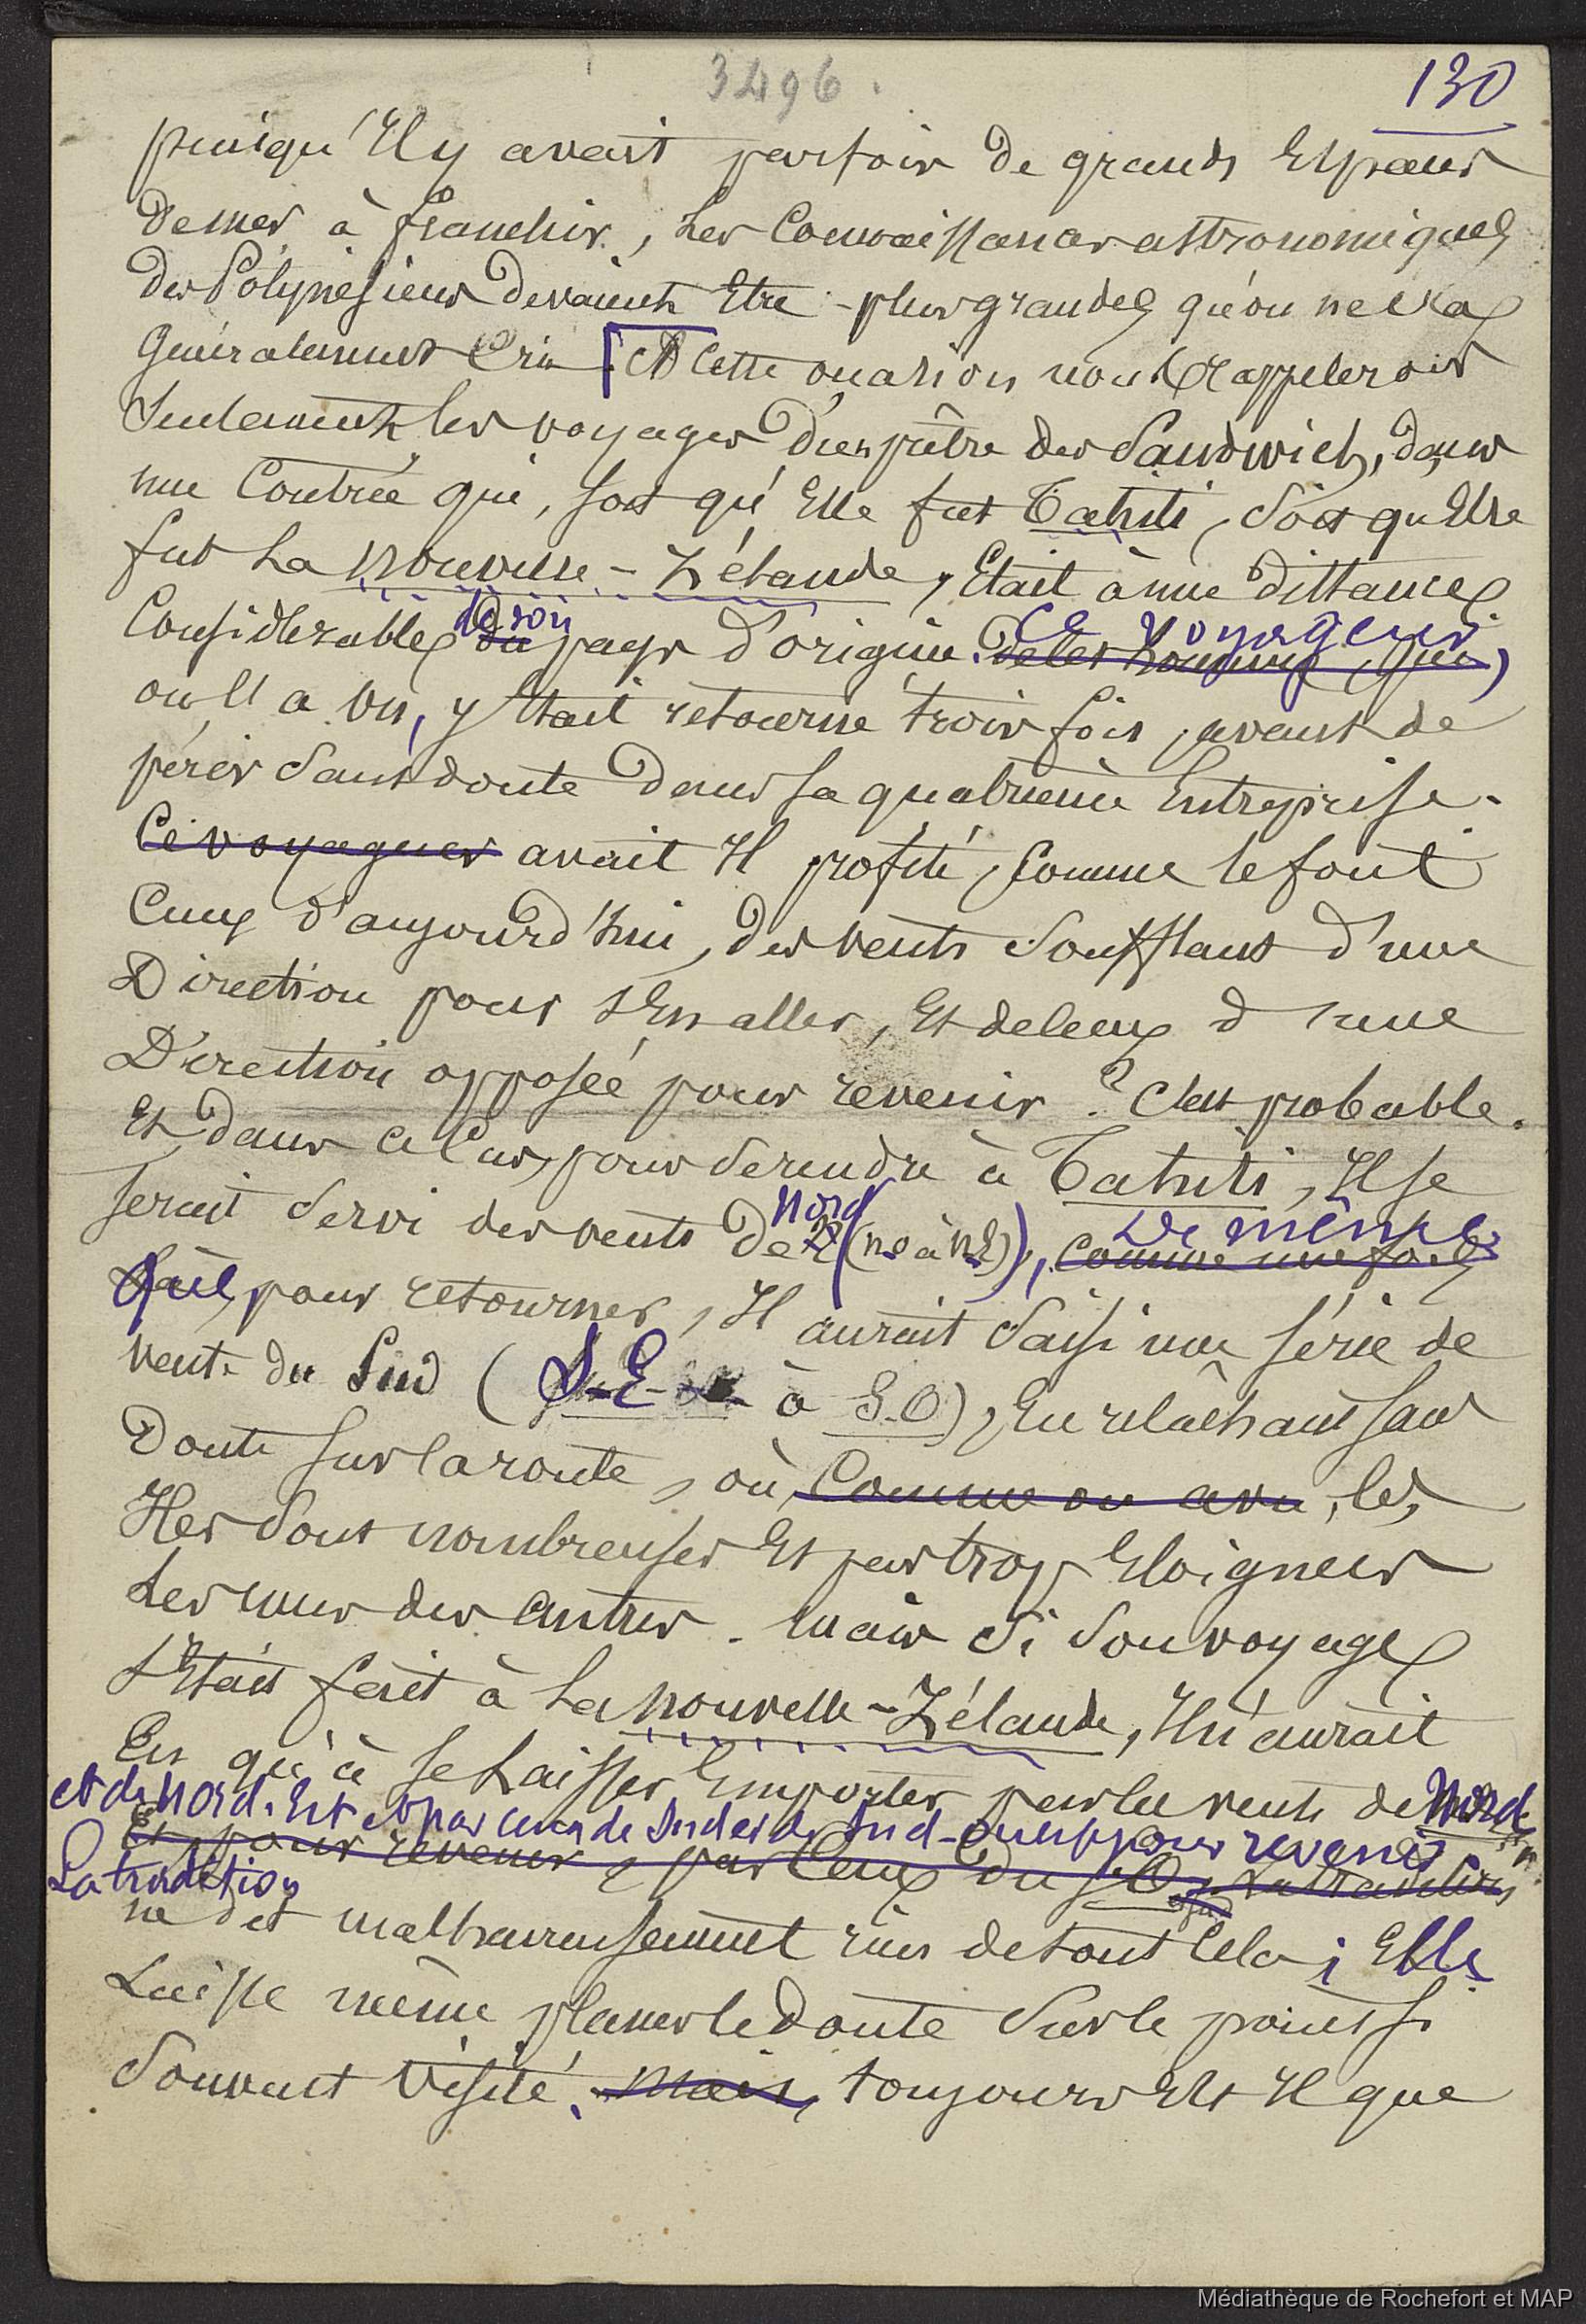 3496.
130
puisqu'il y avait parfois de grands Espaces
de mer à franchir, les Connaissances astronomiques
des Polynésiens devaient Etre plus grandes qu'on ne l'a
Généralement Cru. A Cette occasion nous rappelerons
Seulement les voyages d'un prêtre des Sandwich, dans
une Contrée qui, soit qu'Elle fut Tahiti, soit qu'Elle
fut la Nouvelle-Zélande, Etait à une distance
de son
ce voyageur
Considérable du pays d'origine. de les hommes, qui,
on l'a vu, y Etait retourné trois fois, avant de
périr sans doute dans sa quatrième Entreprise.
Ce voyageur avait Il profité, Comme le font
Ceux d'aujourd'hui, des vents soufflant d'une
Direction pour s'En aller, Et de ceux d'une
Direction opposée pour revenir ? C'est probable.
Et dans ce Cas, pour se rendre à Tahiti, Il se
Nord
de même
serait servi des vents de (no à NE), Comme une fois
que, pour retourner, Il aurait saisi une série de
vents du Sud (S-E à S.O), En relâchant sans
Doute sur la route, où Comme on a vu, les
Iles sont nombreuses Et pas trop Eloignées
Les unes des autres. Mais si son voyage
s'Etait fait à la Nouvelle-Zélande, Il n'aurait
Eu qu'à se Laisser Emporter par les vents de Nord
et de Nord-Est et par ceux de Sud et de Sud-Ouest pour revenir
Et pour revenir, par Ceux du S.O. La tradition
La tradition
ne dit malheureusement rien de tout Cela ; Elle
Laisse même planer le doute sur le point si
souvent visité. Mais, toujours Est Il que
Médiathèque de Rochefort et MAP